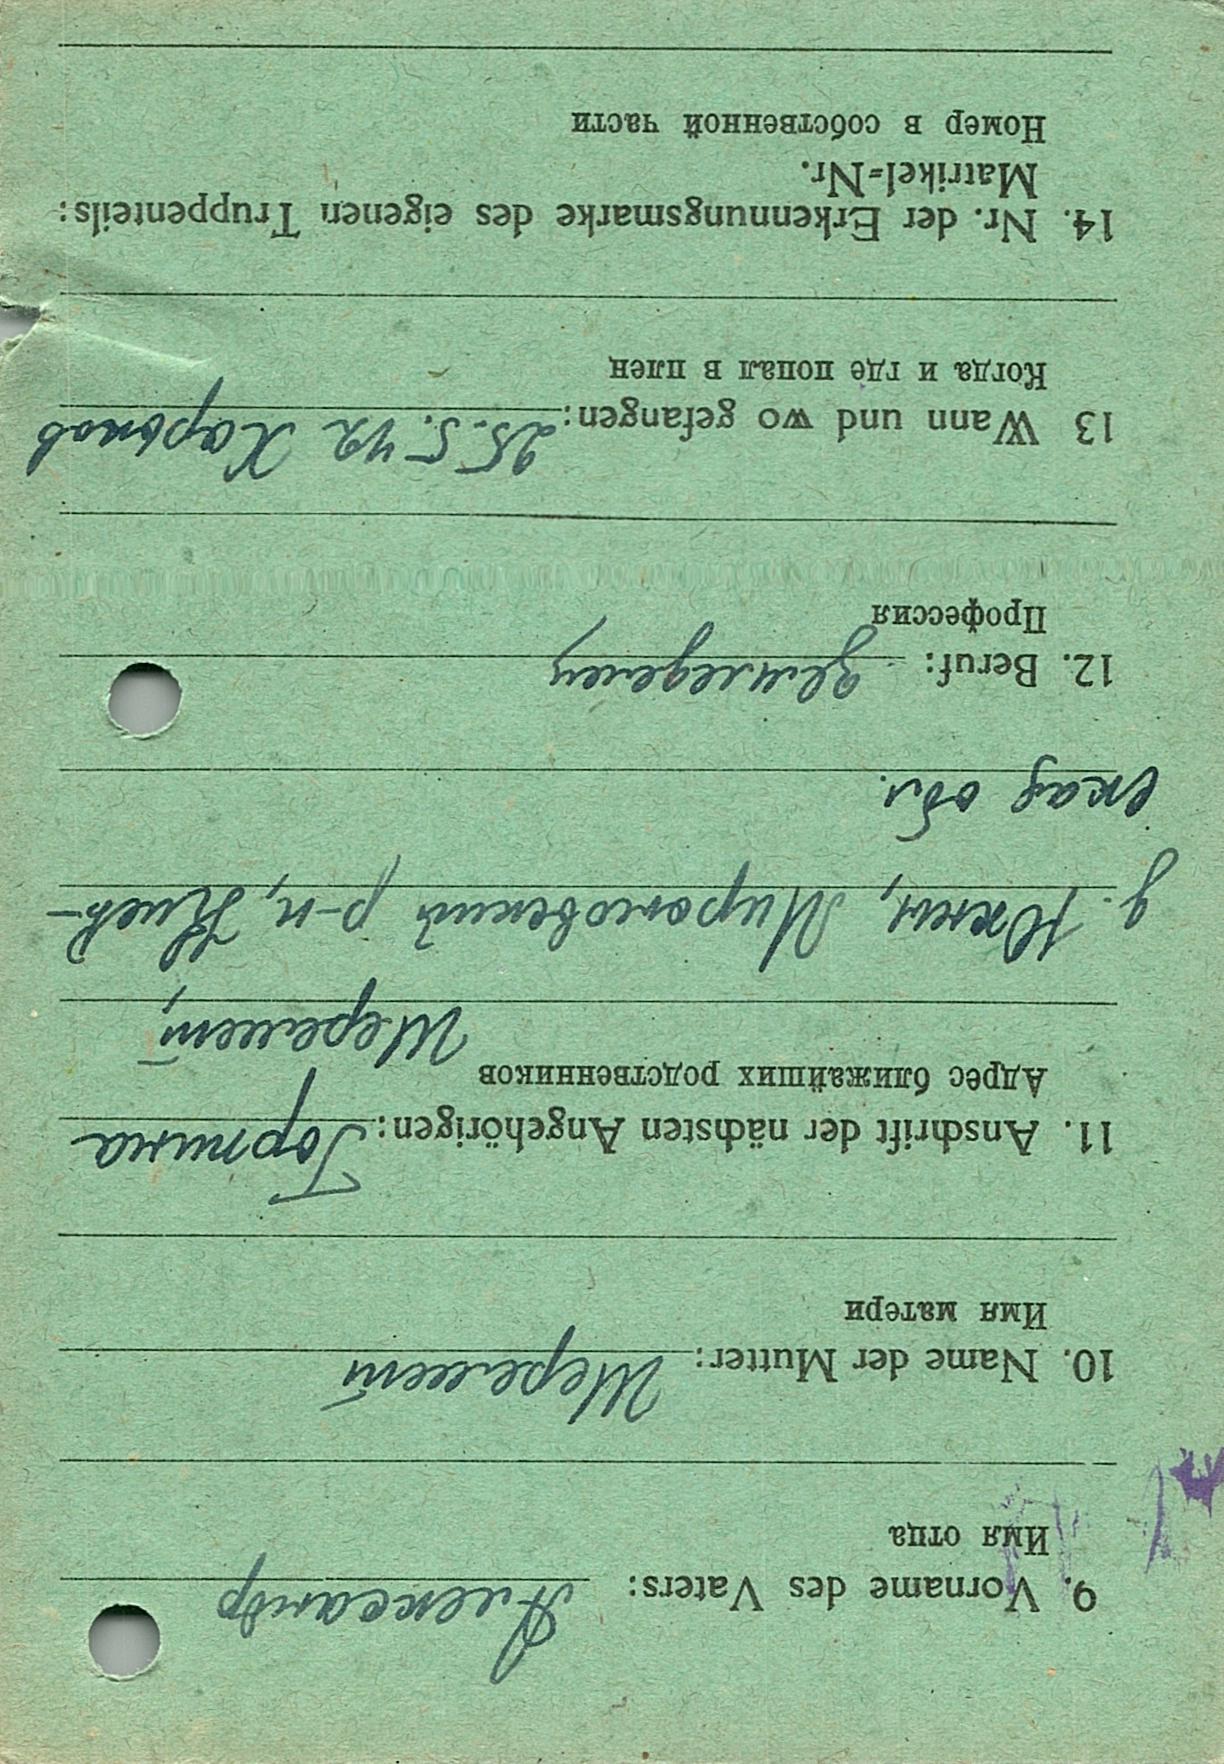 9. Vorname des Vaters: Александр
Имя отца
10. Name der Mutter: Шеремет
Имя матери
11. Anschrift der nächsten Angehörigen: Горпина
Адрес ближайших родственников Шеремет,
д. Юхны, Мироновский р-н, Киев-
ская обл.
12. Beruf: земледелец
Профессия
13 Wann und wo gefangen: 25.5.42 Харьков
Когда и где попал в плен
14. Nr. der Erkennungsmarke des eigenen Truppenteils:
Matrikel=Nr.
Номер в собственной части